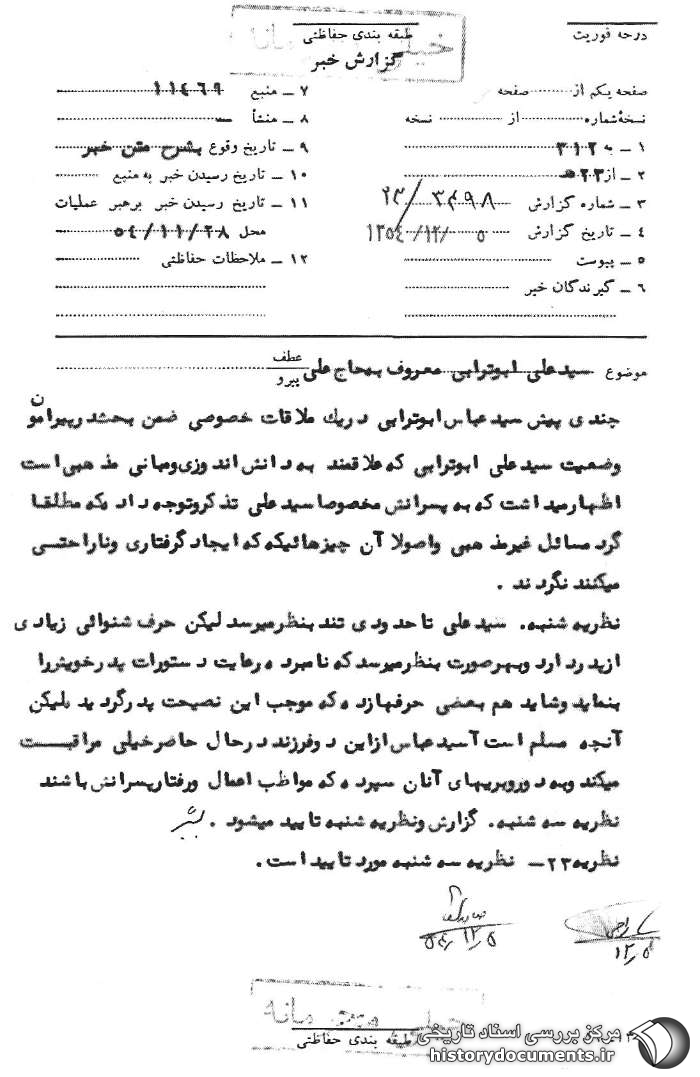 درجه فوریت
طبقه بندی حفاظتی
خیلی محرمانه
گزارش خبر
صفحه یکم از ........ صفحه
نسخهٔ شماره ........ از ........ نسخه
۱ ـ به ۳۱۲
۲ ـ از ۲۳هـ
۳ ـ شماره گزارش ۲۳/۳۴۹۸
۴ ـ تاریخ گزارش ۵ /۱۲/ ۱۳۵۴
۵ ـ پیوست
۶ ـ گیرندگان خبر
۷ ـ منبع ۱۱۴۶۹
۸ ـ منشأ ـ
۹ ـ تاریخ وقوع بشرح متن خبر
۱۰ ـ تاریخ رسیدن خبر به منبع
۱۱ ـ تاریخ رسیدن خبر برهبر عملیات
محل ۵۴/۱۱/۲۸
۱۲ ـ ملاحظات حفاظتی
موضوع سیدعلی ابوترابی معروف بهحاج علی عطف پیرو
چندی پیش سیدعباس ابوترابی دریك ملاقات خصوصی ضمن بحث درپیرامون
وضعیت سیدعلی ابوترابی که علاقمند به دانش اندوزی ومبانی مذهبی است
اظهارمیداشت که به پسرانش مخصوصا سیدعلی تذکروتوجه داده که مطلقا
گرد مسائل غیرمذهبی واصولا آن چیزهائیکه ایجاد گرفتاری وناراحتی
میکنند نگردند .
نظریه شنبه. سیدعلی تاحدودی تند بنظرمیرسد لیکن حرف شنوائی زیادی
ازپدر دارد وبهرصورت بنظرمیرسد که نامبرده رعایت دستورات پدرخویش را
بنماید وشاید هم بعضی حرفهازده که موجب این نصیحت پدر گردیده لیکن
آنچه مسلم است آسیدعباس ازاین دوفرزند درحال حاضر خیلی مراقبت
میکند وبه دوروبریهای آنان سپرده که مواظب اعمال ورفتارپسرانش باشند
نظریه سه شنبه. گزارش ونظریه شنبه تایید میشود .
نظریه ۲۳ـ نظریه سه شنبه مورد تایید است.
۵۴/۱۲/۵
۱۲/۵
خیلی محرمانه
طبقه بندی حفاظتی
مرکز بررسی اسناد تاریخی
historydocuments.ir